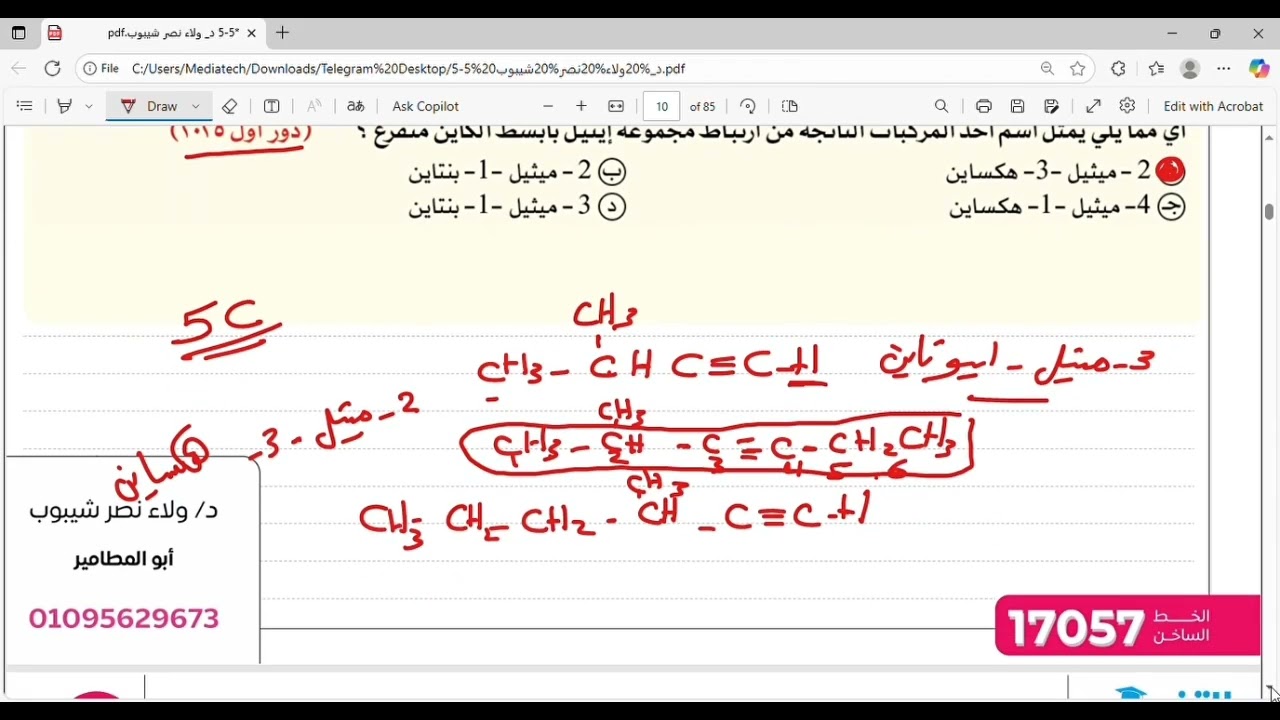 5-5 د_ ولاء نصر شيبوب.pdf*
File C:/Users/Mediatech/Downloads/Telegram%20Desktop/5-5%20د_%20ولاء%20نصر%20شيبوب.pdf
Draw aあ Ask Copilot 10 of 85 Edit with Acrobat
أي مما يلي يمثل اسم أحد المركبات الناتجة من ارتباط مجموعة إيثيل بأبسط ألكاين متفرع ؟ (دور أول ٢٠٢٥)
2 - ميثيل -3- هكساين
ب 2 - ميثيل -1- بنتاين
ج 4- ميثيل -1- هكساين
د 3 - ميثيل -1- بنتاين
5C
CH3
CH3 - CH C≡C-H
3- ميثيل - 1بيوتاين
CH3
CH3 - CH - C ≡ C - CH2 CH3
1 2 3 4 5 6
2 - ميثيل - 3- هكساين
CH3
CH3 CH2 CH2 - CH - C≡C-H
د/ ولاء نصر شيبوب
أبو المطامير
01095629673
الخــط الساخـن 17057